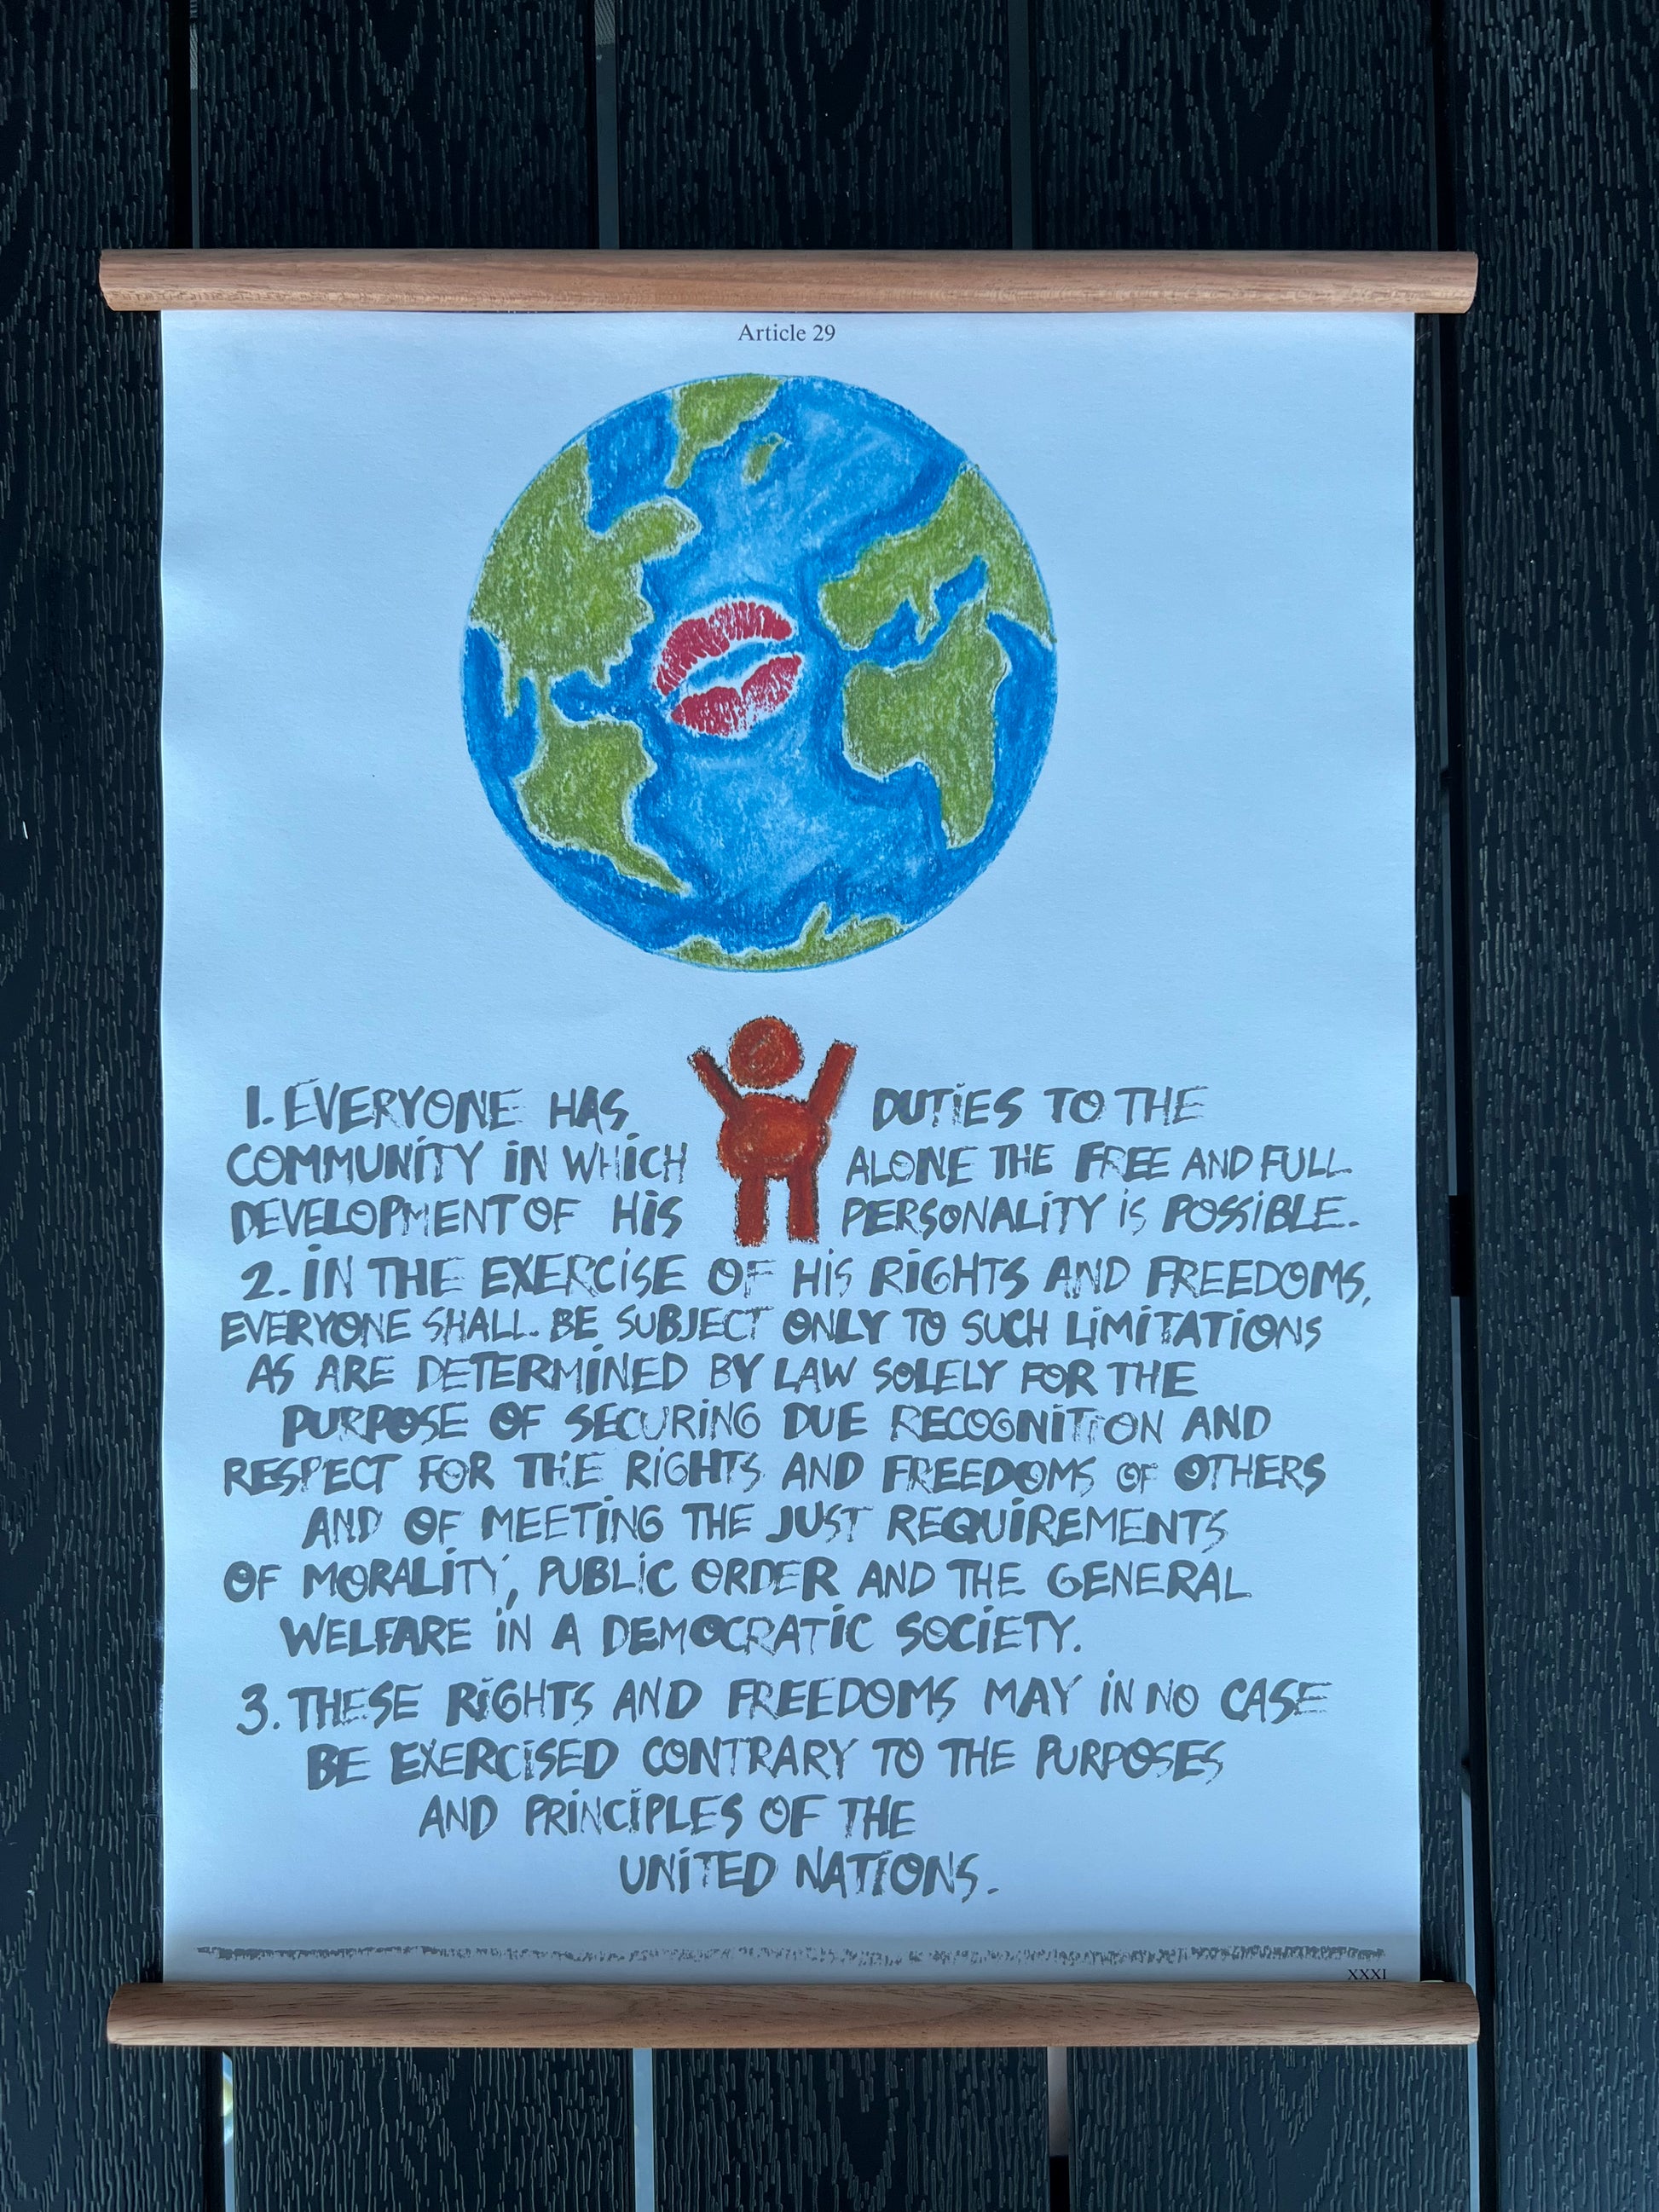 Article 29
1. EVERYONE HAS DUTIES TO THE
COMMUNITY IN WHICH ALONE THE FREE AND FULL
DEVELOPMENT OF HIS PERSONALITY IS POSSIBLE.
2. IN THE EXERCISE OF HIS RIGHTS AND FREEDOMS,
EVERYONE SHALL BE SUBJECT ONLY TO SUCH LIMITATIONS
AS ARE DETERMINED BY LAW SOLELY FOR THE
PURPOSE OF SECURING DUE RECOGNITION AND
RESPECT FOR THE RIGHTS AND FREEDOMS OF OTHERS
AND OF MEETING THE JUST REQUIREMENTS
OF MORALITY, PUBLIC ORDER AND THE GENERAL
WELFARE IN A DEMOCRATIC SOCIETY.
3. THESE RIGHTS AND FREEDOMS MAY IN NO CASE
BE EXERCISED CONTRARY TO THE PURPOSES
AND PRINCIPLES OF THE
UNITED NATIONS.
XXXI